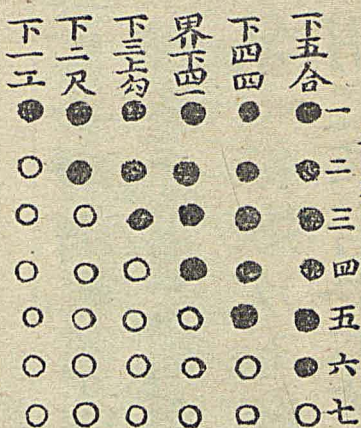 下五合
下四四
界下四一
下三上勾
下二尺
下一工
一
二
三
四
五
六
七